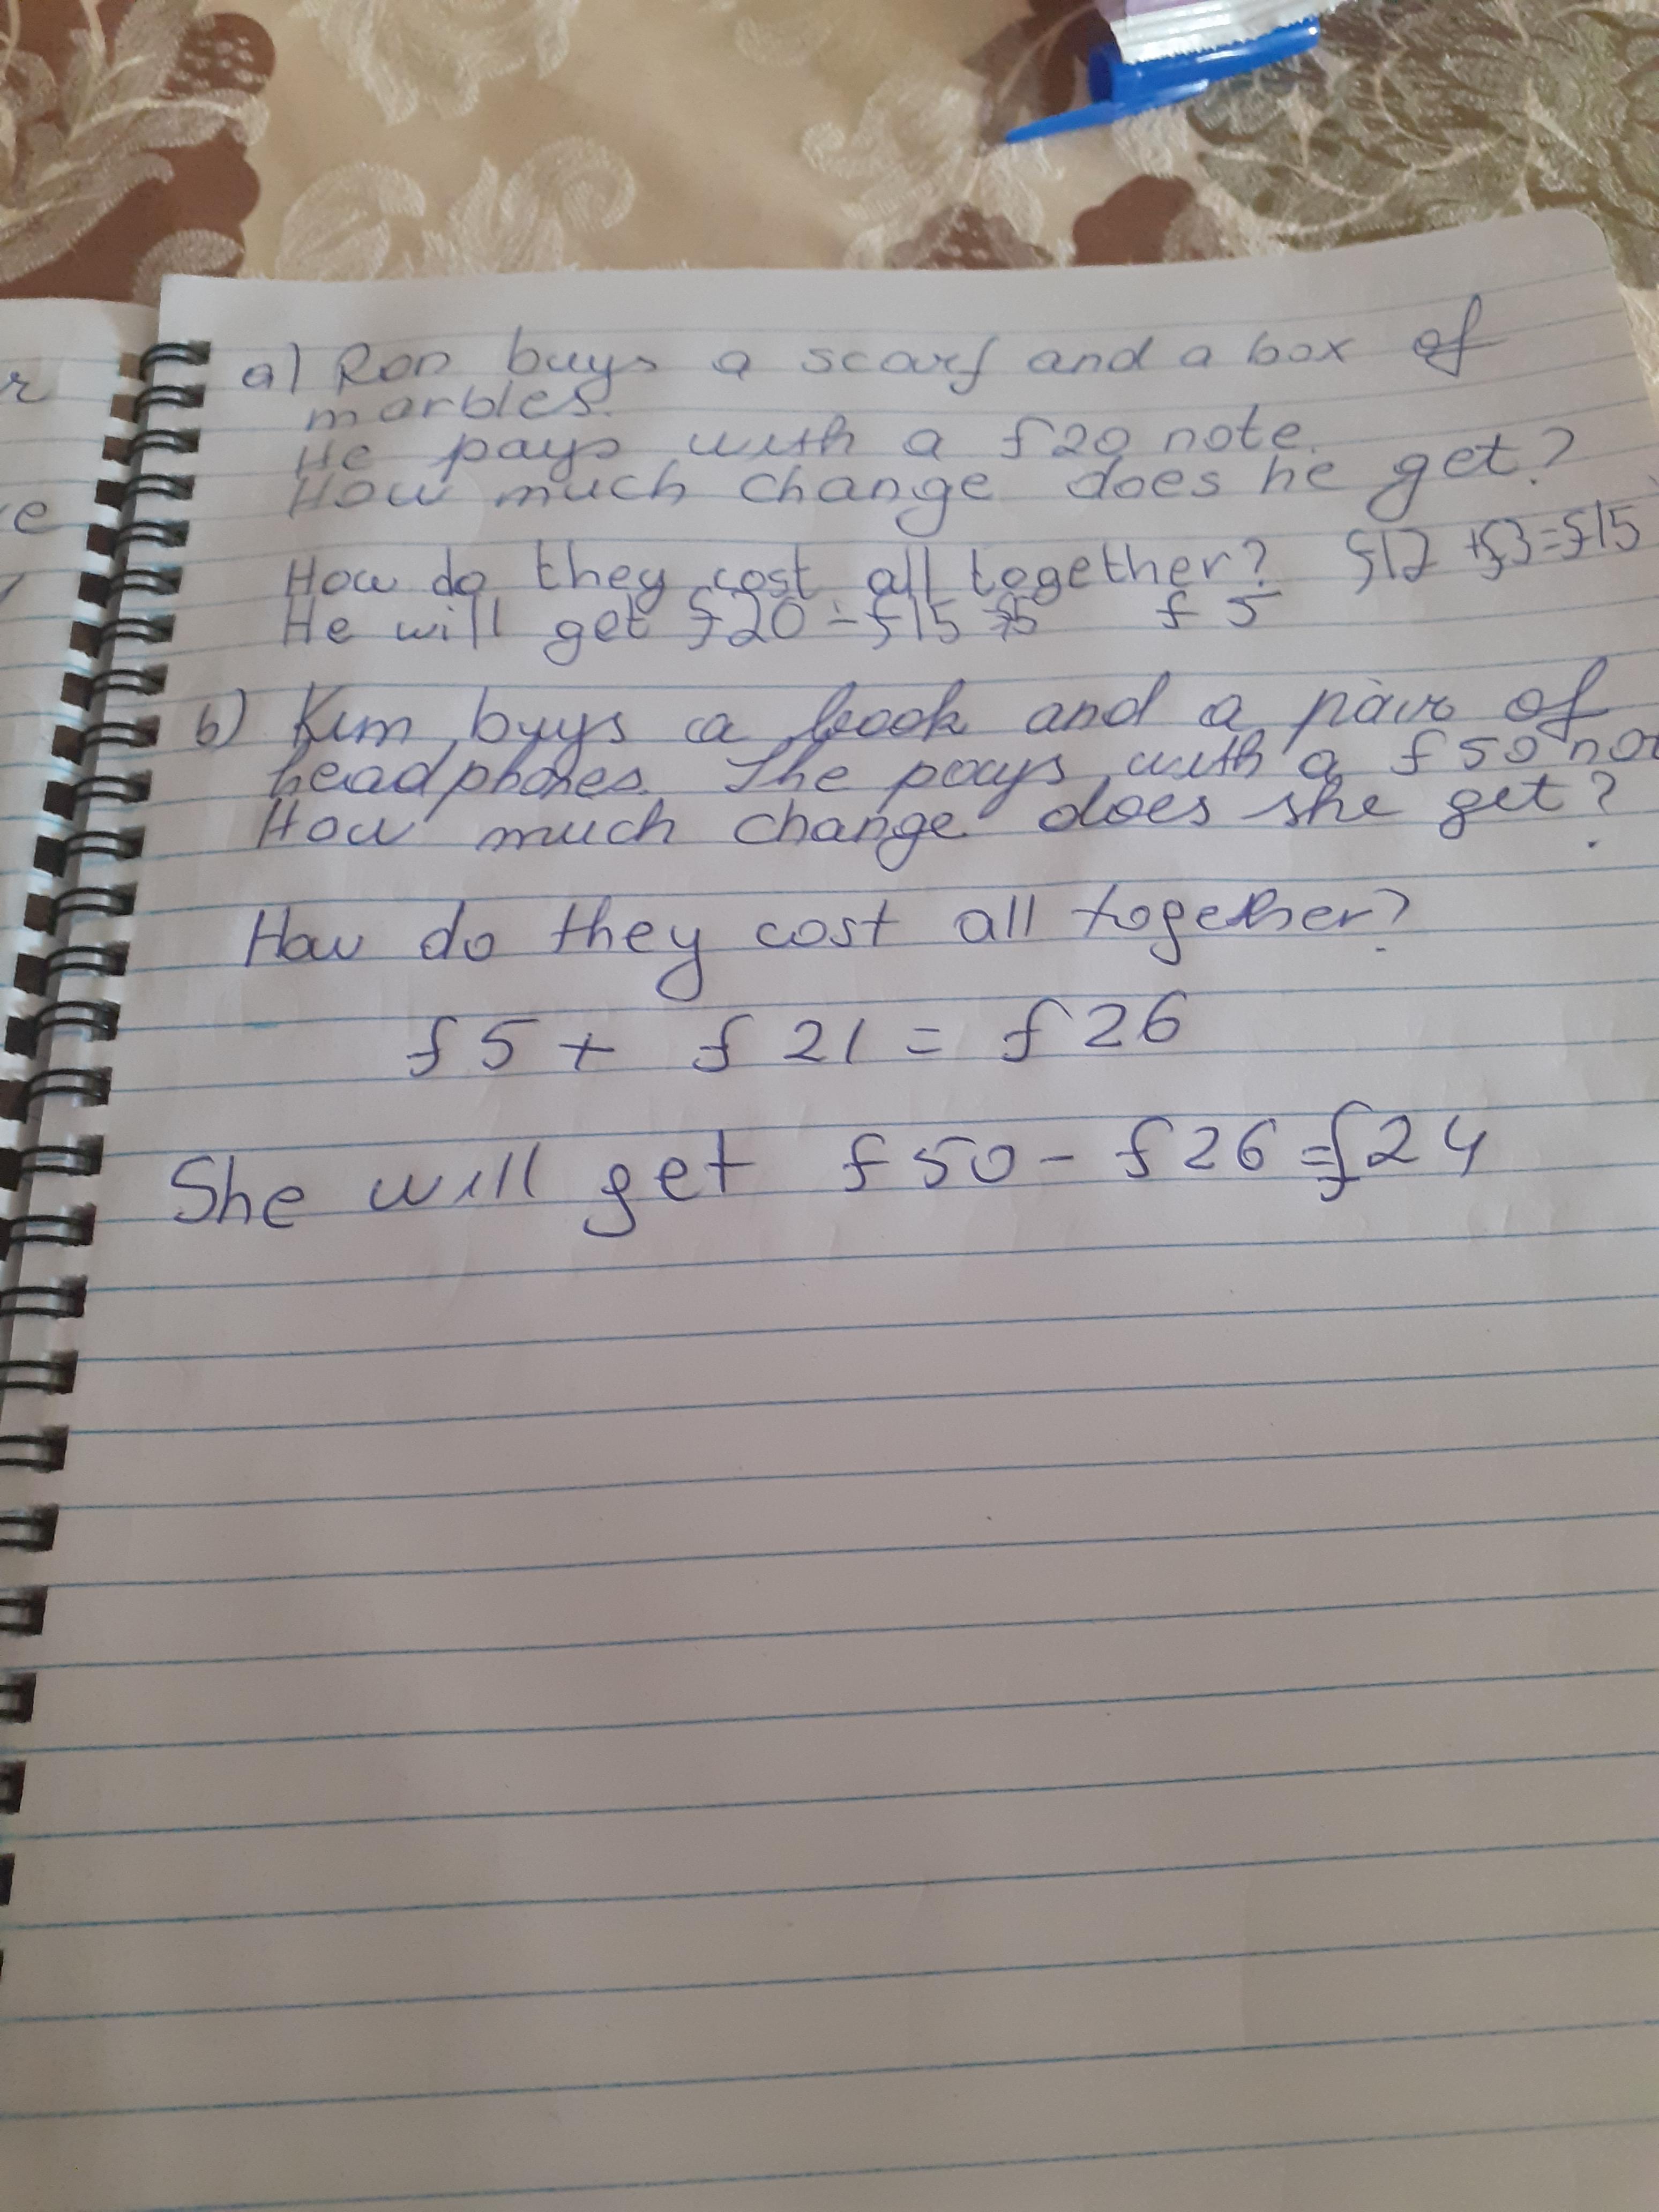 a) Ron buys a scarf and a box of
marbles.
He pays with a £20 note.
How much change does he get?
How do they cost all together? £12 + £3 = £15
He will get £20 - £15 = £5 £5
b) Kim buys a book and a pair of
headphones. She pays with a £50 not
How much change does she get?
How do they cost all together?
£5 + £21 = £26
She will get £50 - £26 = £24